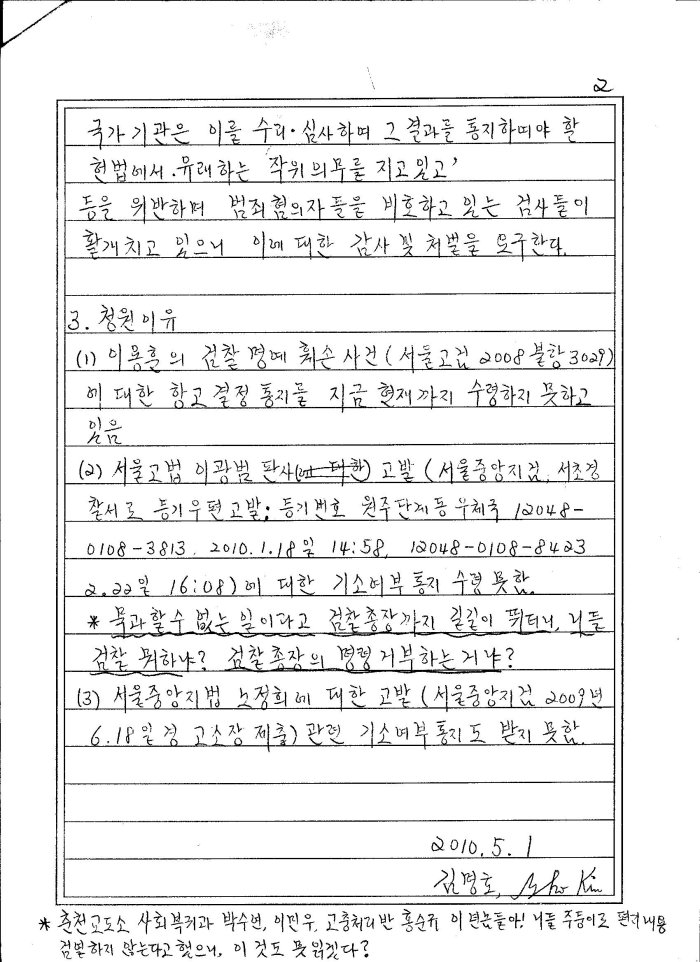 2
국가기관은 이를 수리·심사하며 그 결과를 통지하여야 할
헌법에서 유래하는 작위의무를 지고 있고'
등을 위반하며 범죄혐의자들을 비호하고 있는 검사들이
활개치고 있으니 이에 대한 감사 및 처벌을 요구한다.
3. 청원이유
(1) 이용훈의 검찰 명예 훼손 사건 (서울고검 2008 불항 3029)
에 대한 항고 결정 통지를 지금 현재까지 수령하지 못하고
있음
(2) 서울고법 이광범 판사(에 대한) 고발 (서울중앙지검, 서초경
찰서로 등기우편 고발: 등기번호 원주단계동우체국 12048-
0108-3813. 2010.1.18일 14:58, 12048-0108-8423
2.22일 16:08) 에 대한 기소여부 통지 수령 못함.
* 묵과할 수 없는 일이라고 검찰총장까지 길길이 뛰더니, 니들
검찰 뭐하냐? 검찰총장의 명령 거부하는 거냐?
(3) 서울중앙지법 노정희에 대한 고발 (서울중앙지검 2009년
6.18일경 고소장 제출) 관련 기소여부 통지도 받지 못함.
2010.5.1
김명호, Kim
* 춘천교도소 사회복귀과 박수연, 이민우, 고충처리반 홍순규 이 년놈들아! 니들 주둥이로 편지내용
검열하지 않는다고 했으니, 이 것도 못 읽겠다?